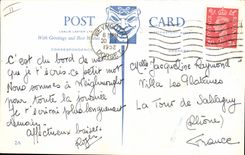 POST CARD
With Greetings and Best Wishes
CORRESPONDENCE
C'est du bord de
que je t'écris ce petit mot
Nous sommes à
pour toute la journée
Je t'écrirai plus longuement
demain.
Affectueux baisers
Jacqueline Raymond
Villa les Platanes
La Tour de Salvagny
(Rhône)
France
1952